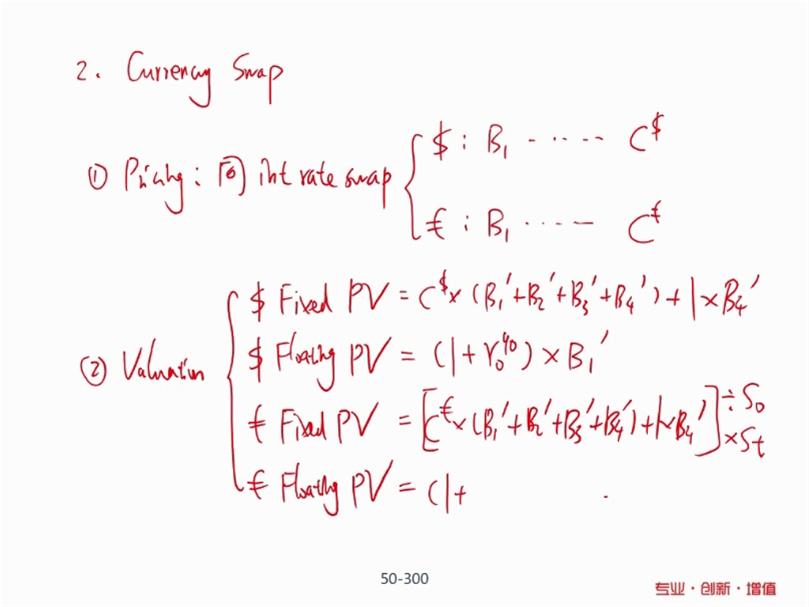 2. Currency Swap
① Pricing: 同 int rate swap
$: B₁ ------ C^$
€: B₁ ------ C^€
② Valuation
$ Fixed PV = C^$ × (B₁'+B₂'+B₃'+B₄')+1×B₄'
$ Floating PV = (1+r₀⁹⁰)×B₁'
€ Fixed PV = [C^€×(B₁'+B₂'+B₃'+B₄')+1×B₄'] ÷S₀ ×St
€ Floating PV = (1+
50-300
专业·创新·增值